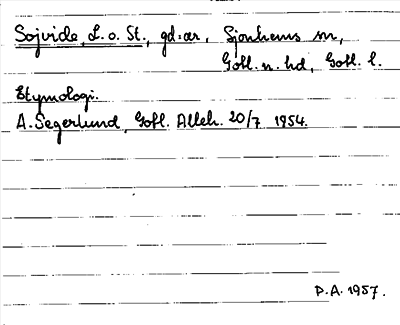 Sojvide, L. o. St., gd:ar, Sjonhems sn,
Gotl. n. hd, Gotl. l.
Etymologi.
A. Segerlund, Gotl. Alleh. 20/7 1954.
P.A. 1957.